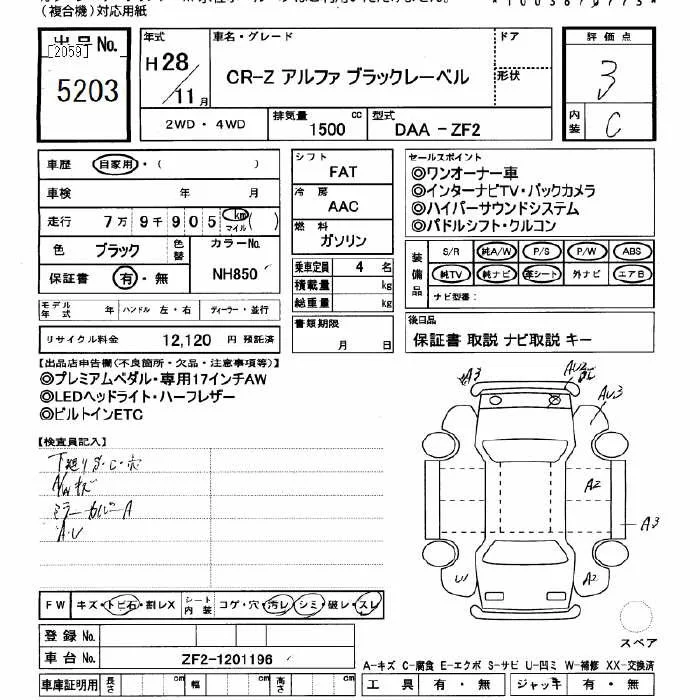 (複合機)対応用紙
*10036
出品No.
[2059]
5203
年式
H28
11月
車名・グレード
CR-Z アルファ ブラックレーベル
ドア
形状
2WD・4WD
排気量
1500 cc
型式
DAA-ZF2
評価点
3
内装
C
車歴 自家用・( )
車検 年 月
走行 7万9千905 km マイル ( )
色 ブラック 色替 カラーNo.
NH850
保証書 有・無
モデル年式 年 ハンドル 左・右 ディーラー・並行
リサイクル料金 12,120 円 預託済
シフト
FAT
冷房
AAC
燃料
ガソリン
乗車定員 4 名
積載量 kg
総重量 kg
書類期限
月 日
セールスポイント
◎ワンオーナー車
◎インターナビTV・バックカメラ
◎ハイパーサウンドシステム
◎パドルシフト・クルコン
装備品
S/R 純A/W P/S P/W ABS
純TV 純ナビ 革シート 外ナビ エアB
ナビ型番:
後日品
保証書 取説 ナビ取説 キー
【出品店申告欄(不良箇所・欠品・注意事項等)】
◎プレミアムペダル・専用17インチAW
◎LEDヘッドライト・ハーフレザー
◎ビルトインETC
【検査員記入】
下廻りS・C・
AWキズ
ミラーカバーA
A・U
A3
AU3
A2
A3
W
A2
スペア
FW キズ・トビ石・割レX シート内装 コゲ・穴・汚レ・シミ・破レ・スレ
登録No.
車台No. ZF2-1201196
車庫証明用 長さ cm 幅 cm 高さ cm
A-キズ C-腐食 E-エクボ S-サビ U-凹ミ W-補修 XX-交換済
工具 有・無 ジャッキ 有・無